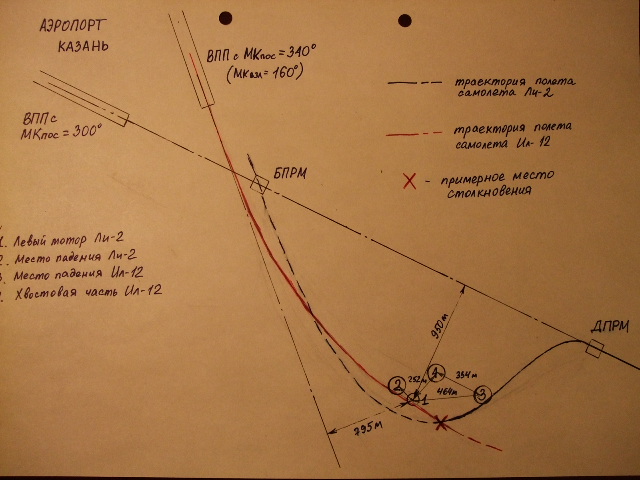 АЭРОПОРТ
КАЗАНЬ
ВПП с МКпос = 340°
(МКвзл = 160°)
ВПП с
МКпос = 300°
БПРМ
траектория полета
самолета Ли-2
траектория полета
самолета Ил-12
- примерное место
столкновения
1. Левый мотор Ли-2
2. Место падения Ли-2
3. Место падения Ил-12
Хвостовая часть Ил-12
ДПРМ
950 м
252м
354м
464м
2
3
1
795м